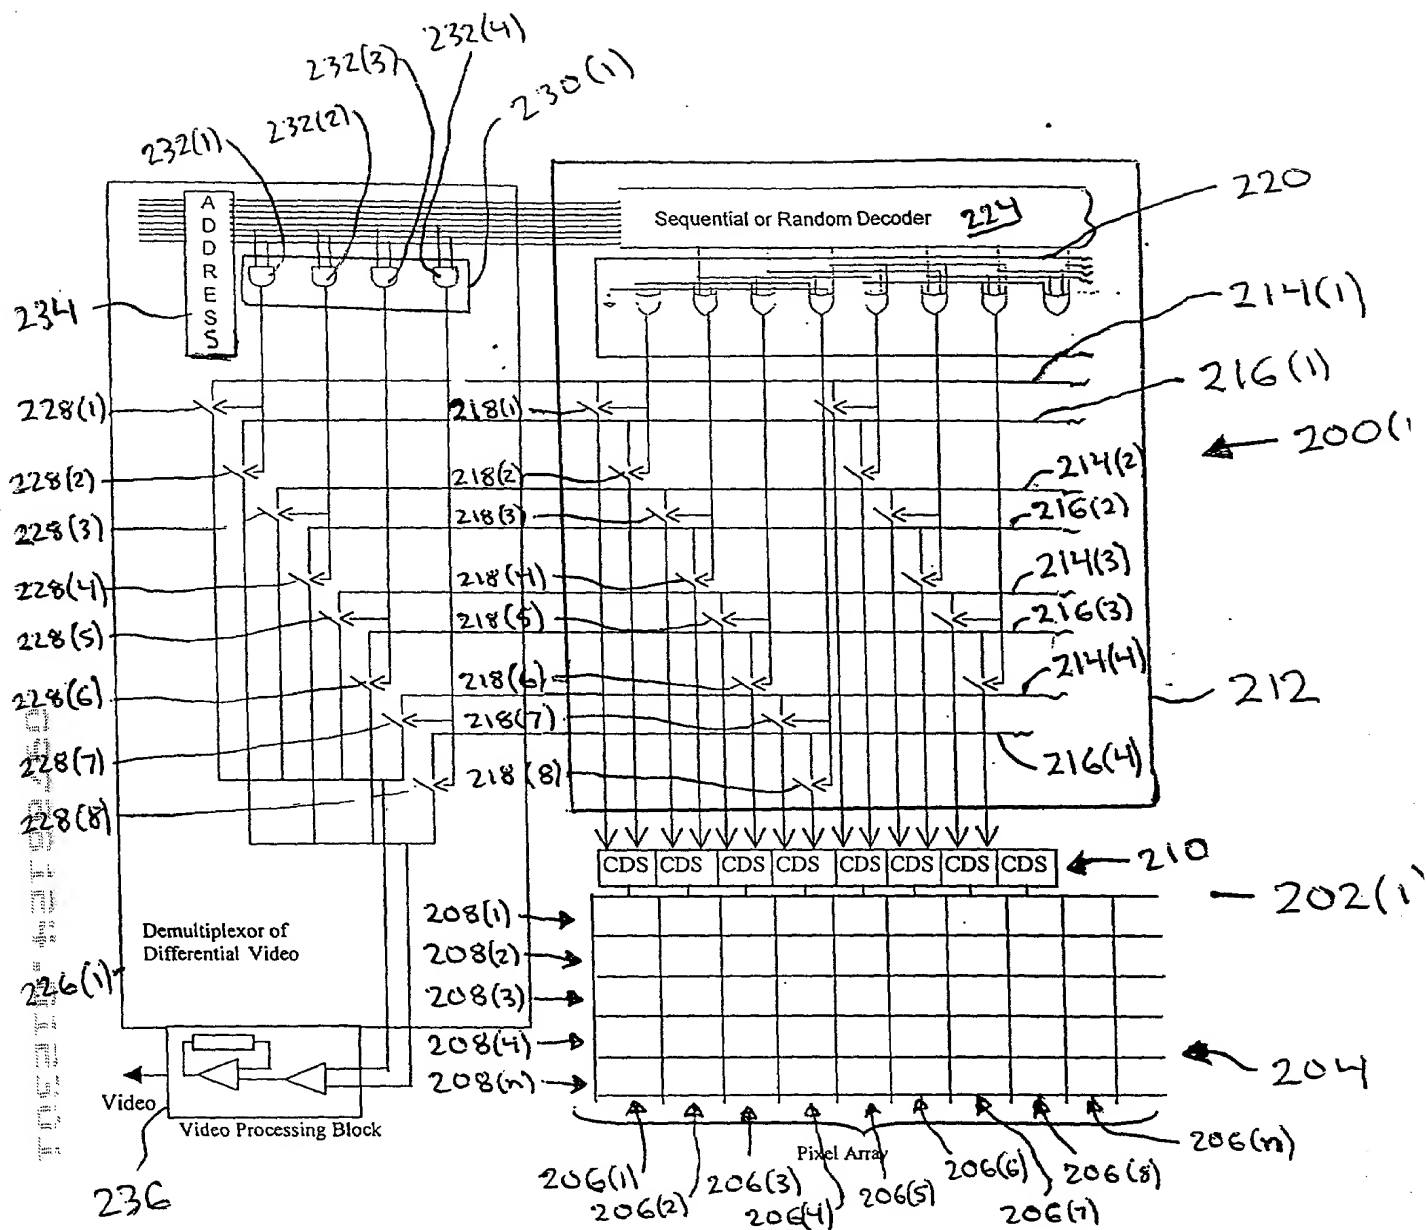 232(4)
232(3)
230(1)
232(2)
232(1)
220
ADDRESS
Sequential or Random Decoder 224
234
214(1)
216(1)
228(1)
218(1)
200(1
228(2)
218(2)
214(2)
228(3)
218(3)
216(2)
228(4)
218(4)
214(3)
228(5)
218(5)
216(3)
228(6)
218(6)
214(4)
212
228(7)
218(7)
216(4)
228(8)
218(8)
CDS CDS CDS CDS CDS CDS CDS CDS
210
202(1)
208(1)
Demultiplexor of
Differential Video
208(2)
226(1)
208(3)
208(4)
204
208(n)
Video
Video Processing Block
Pixel Array
236
206(1)
206(2)
206(3)
206(4)
206(5)
206(6)
206(7)
206(8)
206(n)